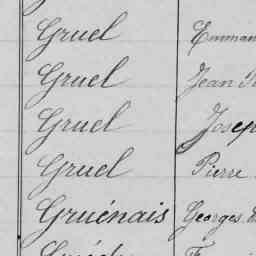 Gruel Emman
Gruel Jean
Gruel Josep
Gruel Pierre
Gruénais Georges